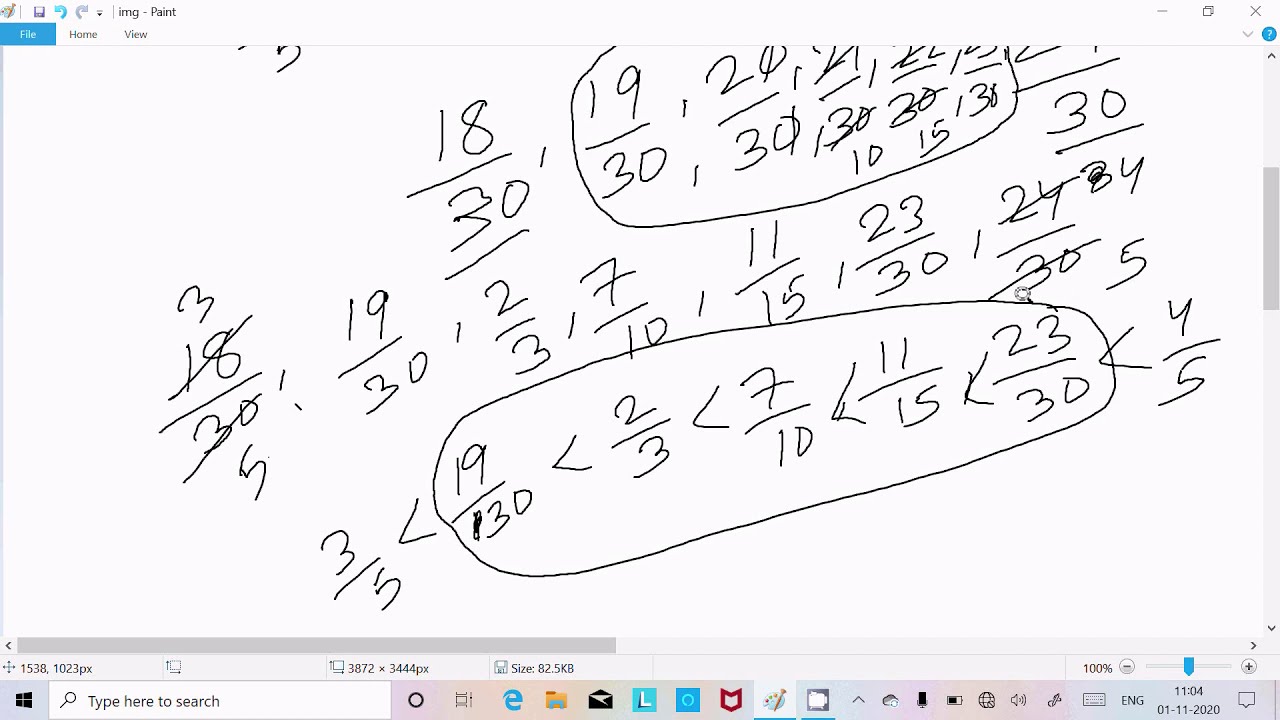 img - Paint
File Home View
5
18/30 , 19/30 , 20/30 , 21/30 , 22/30 , 23/30 , 24/30
10 15
18/30 , 19/30 , 2/3 , 7/10 , 11/15 , 23/30 , 24/30
3 5
4 5
3/5 < 19/30 < 2/3 < 7/10 < 11/15 < 23/30 < 4/5
1538, 1023px 3872 × 3444px Size: 82.5KB 100%
Type here to search L ENG 11:04
01-11-2020